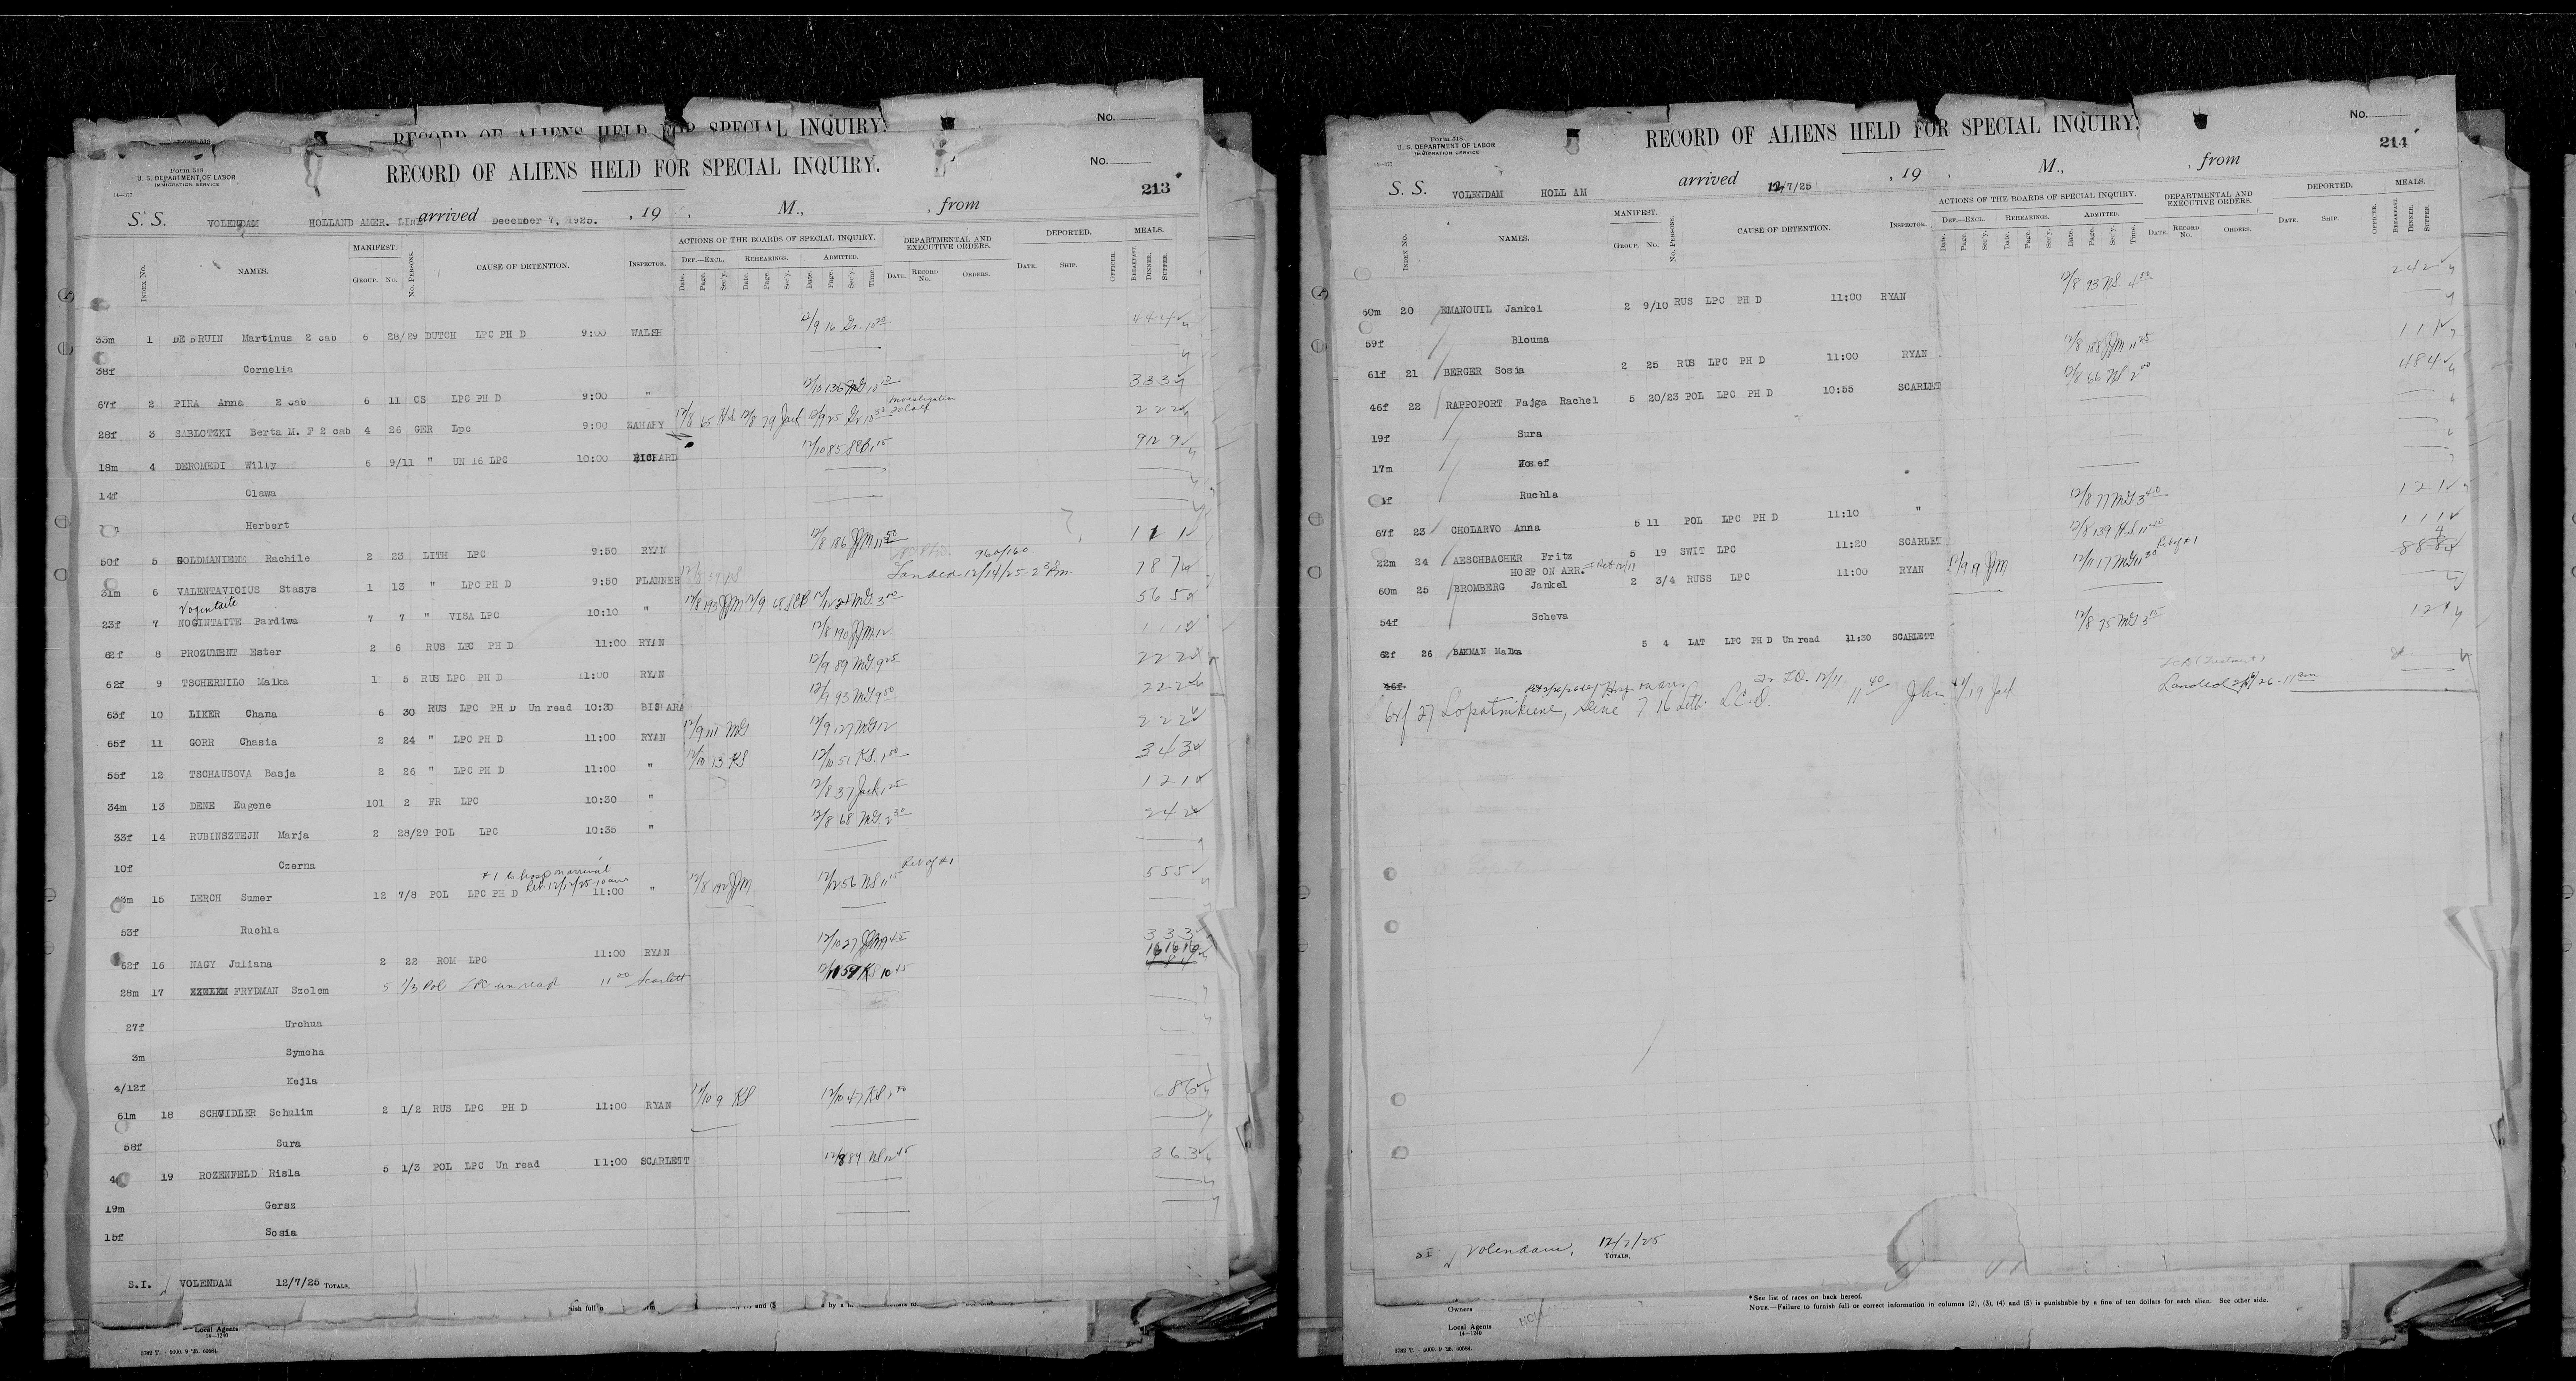 RECORD OF ALIENS HELD FOR SPECIAL INQUIRY.
No.
Form 518
U. S. DEPARTMENT OF LABOR
IMMIGRATION SERVICE
14—577
RECORD OF ALIENS HELD FOR SPECIAL INQUIRY.
No.
213
S. S. VOLENDAM HOLLAND AMER. LINE arrived December 7, 1925. , 19 , M., , from
INDEX No. NAMES. MANIFEST. GROUP. No. No. PERSONS. CAUSE OF DETENTION. INSPECTOR. ACTIONS OF THE BOARDS OF SPECIAL INQUIRY. DEF.—EXCL. REHEARINGS. ADMITTED. DEPARTMENTAL AND EXECUTIVE ORDERS. DEPORTED. MEALS.
Date. Page. Sec'y. Date. Page. Sec'y. Date. Page. Sec'y. Time. DATE. RECORD No. ORDERS. DATE. SHIP. OFFICER. BREAKFAST. DINNER. SUPPER.
33m 1 DE BRUIN Martinus 2 cab 6 28/29 DUTCH LPC PH D 9:00 WALSH 12/9 16 Gr. 10 20 4 4 4
38f Cornelia
67f 2 PIRA Anna 2 cab 6 11 CS LPC PH D 9:00 " 12/10 136 MG 10 3 3 3
28f 3 SABLOTZKI Berta M. F 2 cab 4 26 GER Lpc 9:00 ZAHARY 12/8 65 HS 12/8 79 Jack 12/9 25 Gr 10 Investigation 2 2 2
18m 4 DEROMEDI Willy 6 9/11 " UN 16 LPC 10:00 BICHARD 12/10 85 SEB 1 15 9 12 9
14f Clawa
Herbert
50f 5 GOLDMANIENE Rachile 2 23 LITH LPC 9:50 RYAN 12/8 186 JJM 11 50 1 1 1
31m 6 VALENTAVICIUS Stasys 1 13 " LPC PH D 9:50 FLANNER 960/160 Landed 12/14/25 7 8 7
Vogintaite
23f 7 NOGINTAITE Pardiwa 7 7 " VISA LPC 10:10 " 12/8 193 JJM 12/9 68 SEB 5 6 5
62f 8 PROZUMENT Ester 2 6 RUS LPC PH D 11:00 RYAN 12/8 190 JJM 12 1 1 1
62f 9 TSCHERNILO Malka 1 5 RUS LPC PH D 11:00 RYAN 12/9 89 MG 9 25 2 2 2
63f 10 LIKER Chana 6 30 RUS LPC PH D Un read 10:30 12/9 93 MG 9 50 2 2 2
65f 11 GORR Chasia 2 24 " LPC PH D 11:00 RYAN 12/9 111 MG 12/9 127 MG 12 2 2 2
55f 12 TSCHAUSOVA Basja 2 26 " LPC PH D 11:00 " 12/10 13 KS 12/10 51 KS 1 00 3 4 3
34m 13 DENE Eugene 101 2 FR LPC 10:30 " 12/8 37 Jack 1 25 1 2 1
33f 14 RUBINSZTEJN Marja 2 28/29 POL LPC 10:35 " 12/8 68 MG 2 30 2 4 2
10f Czerna
#1 to hosp on arrival
Ret 12/12/25-10am Ret of #1
15 LERCH Sumer 12 7/8 POL LPC PH D 11:00 " 12/8 192 JJM 12/12 56 NS 11 15 5 5 5
53f Ruchla
52f 16 NAGY Juliana 2 22 ROM LPC 11:00 RYAN 12/10 27 JJM 9 45 3 3 3
28m 17 FRYDMAN Szolem 5 1/3 Pol LPC un read 11 00 Scarlett 10 45 16 16 16
27f Urchua
3m Symcha
4/12f Kejla
61m 18 SCHUIDLER Schulim 2 1/2 RUS LPC PH D 11:00 RYAN 12/10 9 KS 12/10 47 KS 6 8 6
58f Sura
19 ROZENFELD Risla 5 1/3 POL LPC Un read 11:00 SCARLETT 12/8 89 NS 12 45 3 6 3
19m Gersz
15f Sosia
S.I. VOLENDAM 12/7/25 TOTALS.
Local Agents
14—1240
Form 518
U. S. DEPARTMENT OF LABOR
IMMIGRATION SERVICE
14—577
RECORD OF ALIENS HELD FOR SPECIAL INQUIRY.
No.
214
S. S. VOLENDAM HOLL AM arrived 12/7/25 , 19 , M., , from
INDEX No. NAMES. MANIFEST. GROUP. No. No. PERSONS. CAUSE OF DETENTION. INSPECTOR. ACTIONS OF THE BOARDS OF SPECIAL INQUIRY. DEF.—EXCL. REHEARINGS. ADMITTED. DEPARTMENTAL AND EXECUTIVE ORDERS. DEPORTED. MEALS.
Date. Page. Sec'y. Date. Page. Sec'y. Date. Page. Sec'y. Time. DATE. RECORD No. ORDERS. DATE. SHIP. OFFICER. BREAKFAST. DINNER. SUPPER.
60m 20 EMANOUIL Jankel 2 9/10 RUS LPC PH D 11:00 RYAN 12/8 93 NS 4 00 2 4 2
59f Blouma
61f 21 BERGER Sosia 2 25 RUS LPC PH D 11:00 RYAN 12/8 188 JJM 11 25 1 1 1
46f 22 RAPPOPORT Fajga Rachel 5 20/23 POL LPC PH D 10:55 SCARLET 12/8 66 NS 2 00 4 8 4
19f Sura
17m Josef
Ruchla
67f 23 CHOLARVO Anna 5 11 POL LPC PH D 11:10 " 12/8 77 MG 3 40 1 2 1
22m 24 AESCHBACHER Fritz 5 19 SWIT LPC 11:20 SCARLET 12/8 139 HS 11 40 1 1 1
HOSP ON ARR. Ret of #1
60m 25 BROMBERG Jankel 2 3/4 RUSS LPC 11:00 RYAN 12/9 9 JJM 12/11 17 MG 11 30 8 8 8
54f Scheva
62f 26 BAKMAN Malka 5 4 LAT LPC PH D Un read 11:30 SCARLETT 12/8 75 MG 3 15 1 2 1
46f
Hosp on arr. 12/11
64f 27 Lopatnikiene, 7 16 Lith. L.C.D. 11 40 12/19 Jack Landed 26 - 11 am
SI Volendam, 12/7/25
TOTALS.
Owners
Local Agents
14—1240
* See list of races on back hereof.
NOTE.—Failure to furnish full or correct information in columns (2), (3), (4) and (5) is punishable by a fine of ten dollars for each alien. See other side.